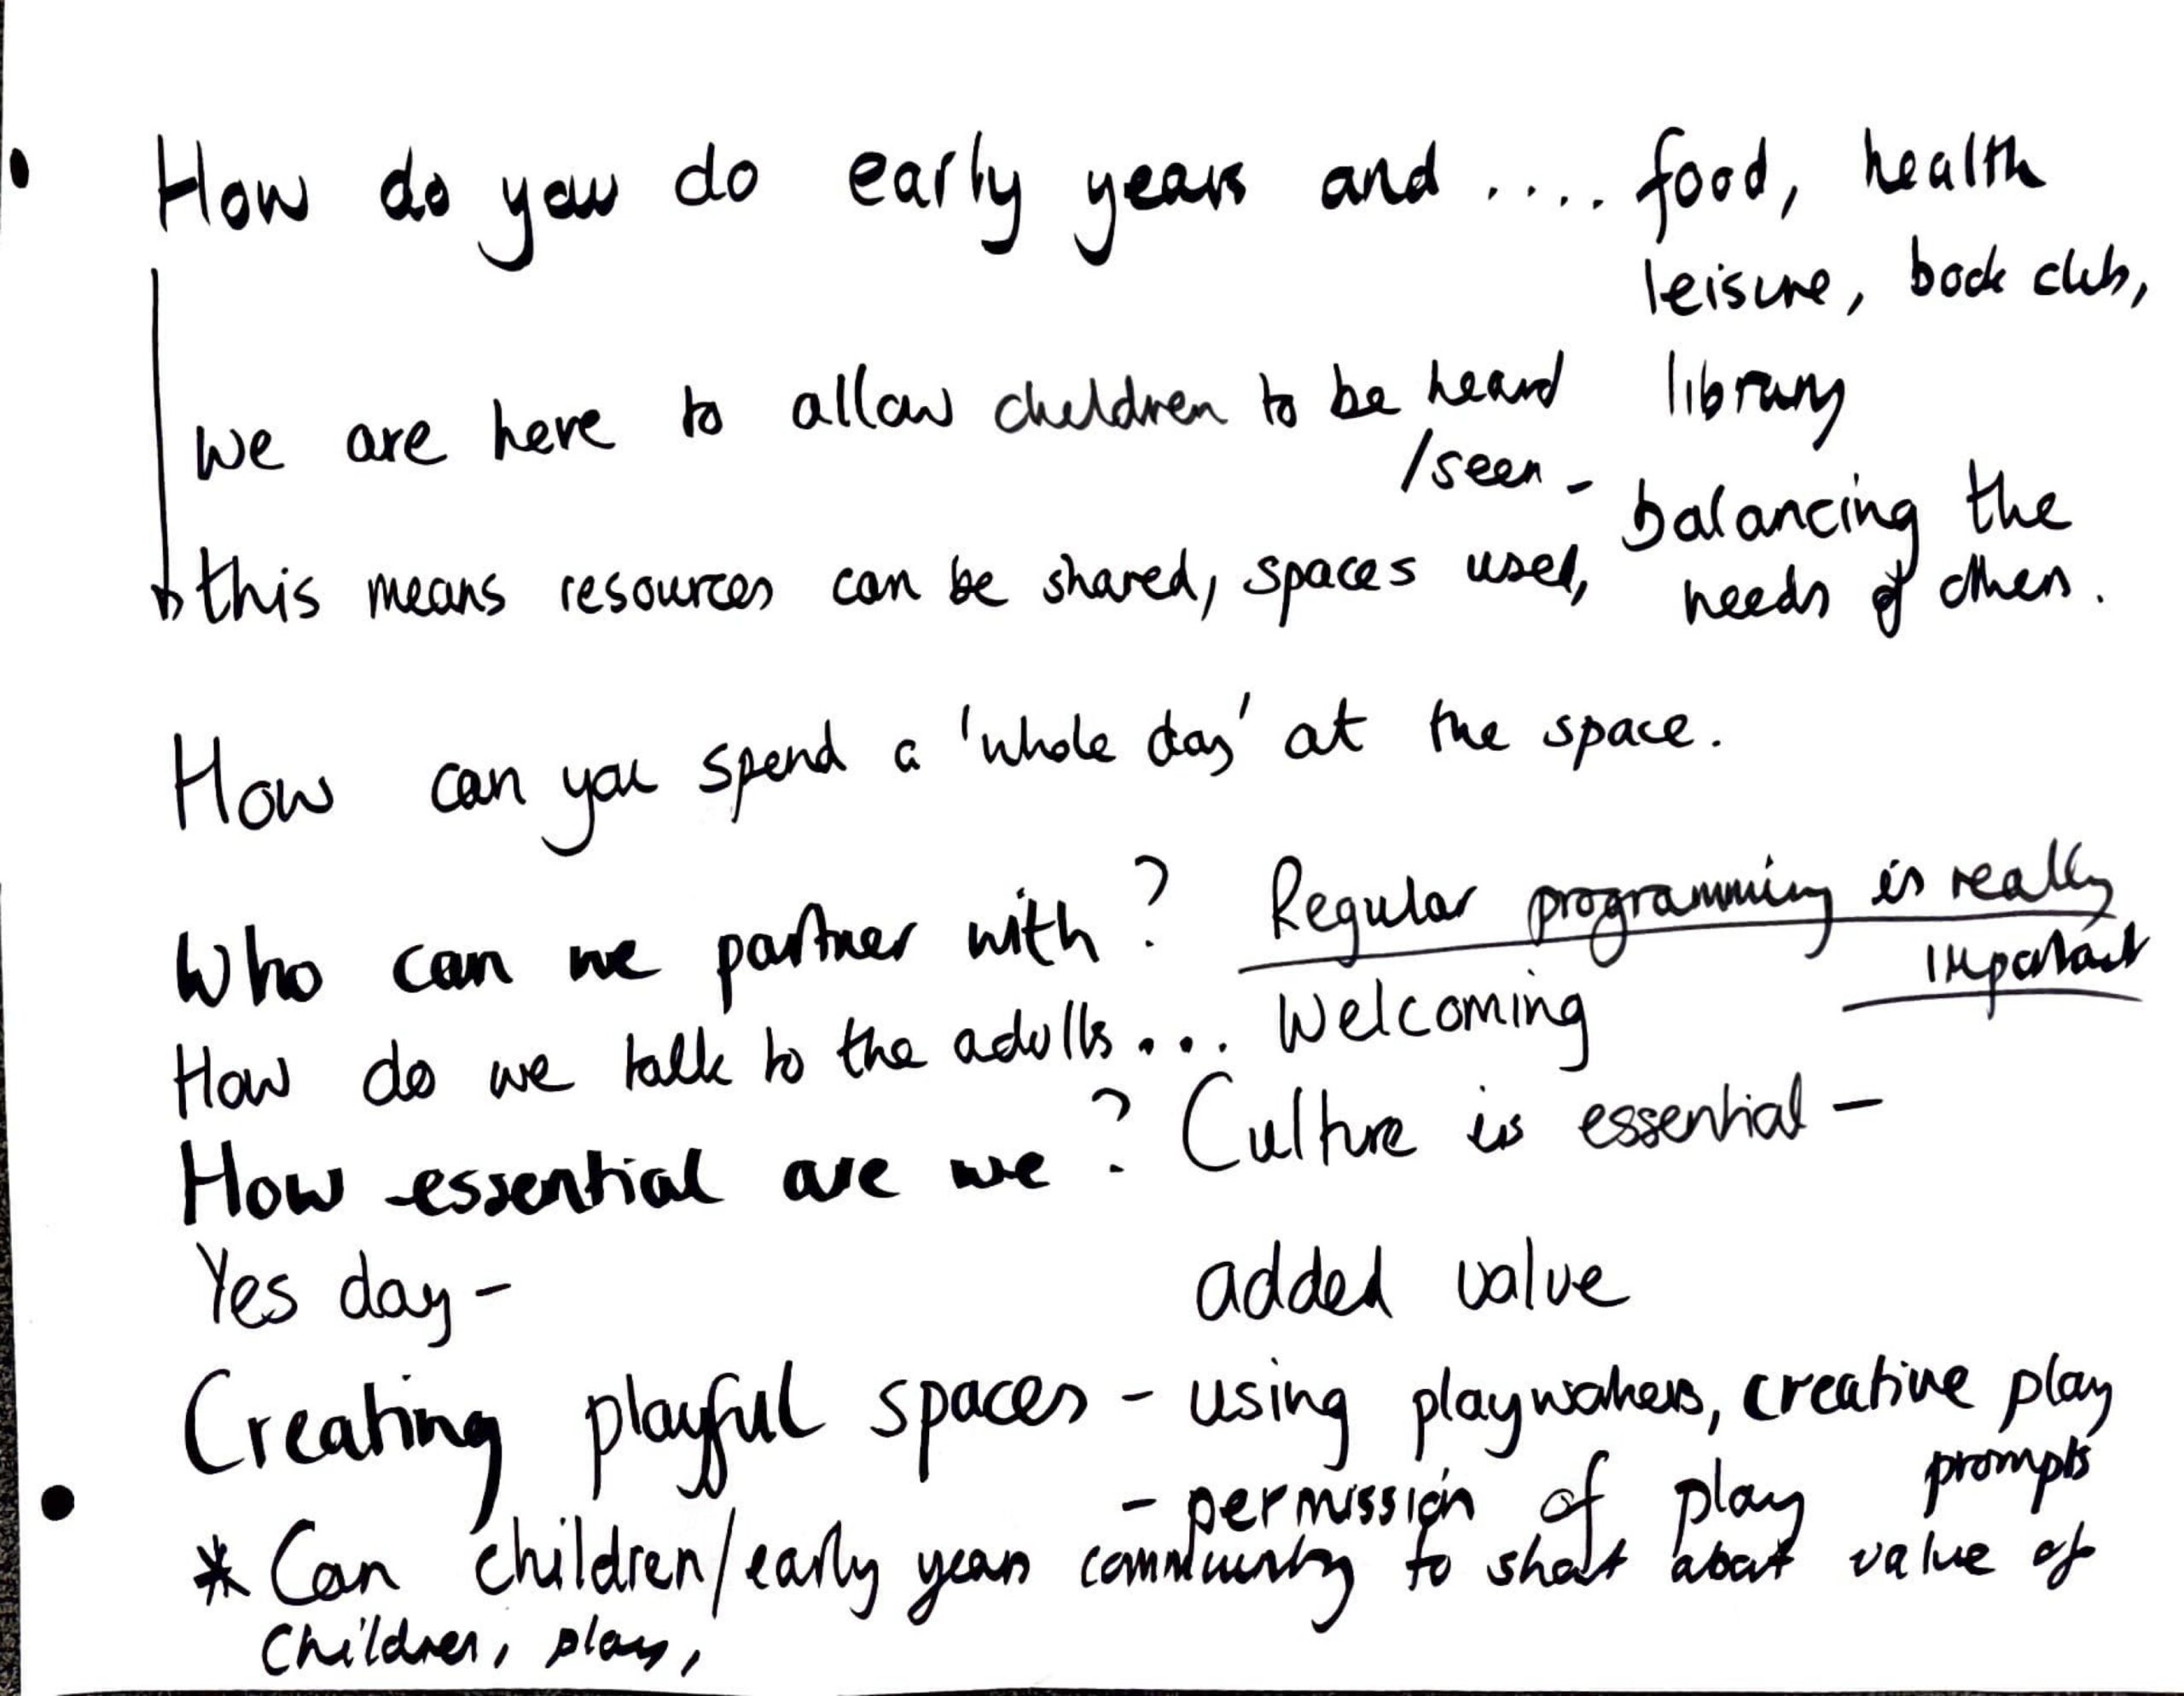 How do you do early years and .... food, health
leisure, book club,
library
we are here to allow children to be heard
/seen - balancing the
needs of others.
this means resources can be shared, spaces used,
How can you spend a 'whole day' at the space.
Who can we partner with? Regular programming is really
important
How do we talk to the adults... Welcoming
How essential are we? Culture is essential -
Yes day - added value
Creating playful spaces - using playworkers, creative play
prompts
- permission of play
* Can children/early years community to shout about value of
children, play,